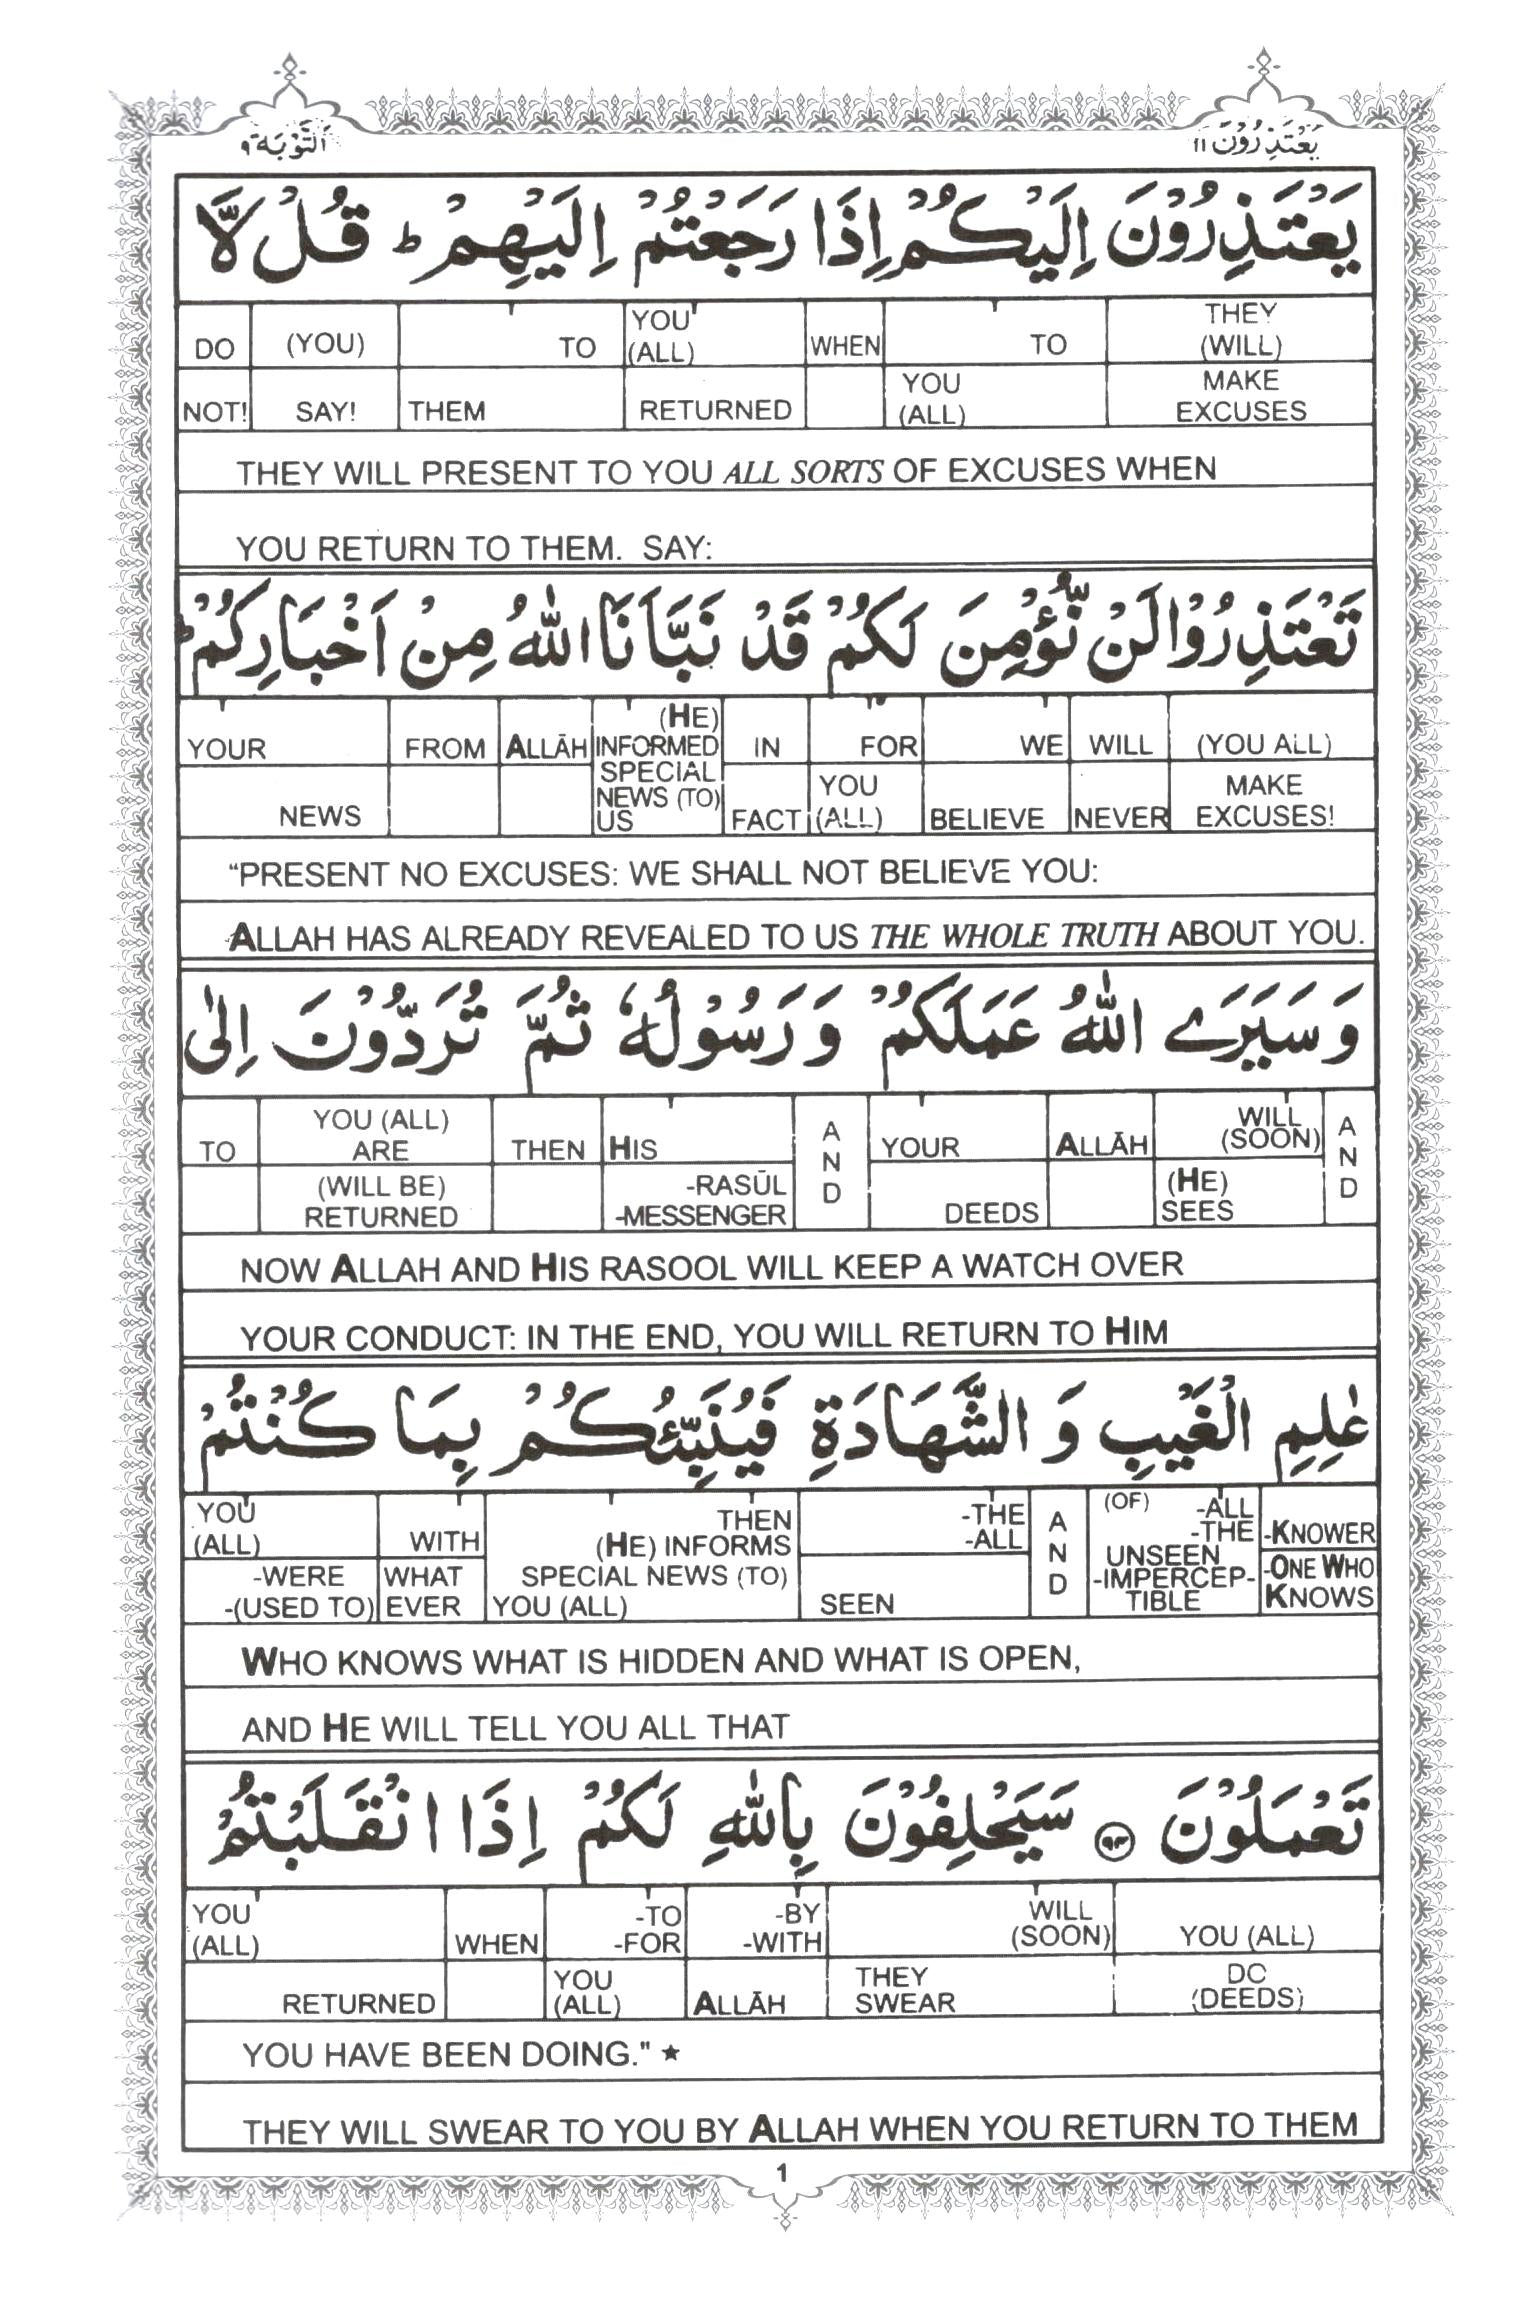 يَعْتَذِرُوْنَ ١١
اَلتَّوْبَة ٩
يَعْتَذِرُوْنَ اِلَيْكُمْ اِذَا رَجَعْتُمْ اِلَيْهِمْ ؕ قُلْ لَّا
DO (YOU) TO YOU WHEN TO THEY
(ALL) (WILL)
NOT! SAY! THEM RETURNED YOU MAKE
(ALL) EXCUSES
THEY WILL PRESENT TO YOU ALL SORTS OF EXCUSES WHEN
YOU RETURN TO THEM. SAY:
تَعْتَذِرُوْا لَنْ نُّؤْمِنَ لَكُمْ قَدْ نَبَّاَنَا اللّٰهُ مِنْ اَخْبَارِكُمْ ؕ
YOUR FROM ALLĀH (HE) INFORMED IN FOR WE WILL (YOU ALL)
NEWS SPECIAL NEWS (TO) US FACT YOU (ALL) BELIEVE NEVER MAKE EXCUSES!
“PRESENT NO EXCUSES: WE SHALL NOT BELIEVE YOU:
ALLAH HAS ALREADY REVEALED TO US THE WHOLE TRUTH ABOUT YOU.
وَ سَيَرَے اللّٰهُ عَمَلَكُمْ وَ رَسُوْلُهٗ ثُمَّ تُرَدُّوْنَ اِلٰى
TO YOU (ALL) ARE THEN HIS AND YOUR ALLĀH WILL (SOON) AND
(WILL BE) RETURNED -RASŪL -MESSENGER DEEDS (HE) SEES
NOW ALLAH AND HIS RASOOL WILL KEEP A WATCH OVER
YOUR CONDUCT: IN THE END, YOU WILL RETURN TO HIM
عٰلِمِ الْغَيْبِ وَ الشَّهَادَةِ فَيُنَبِّئُكُمْ بِمَا كُنْتُمْ
YOU (ALL) WITH THEN (HE) INFORMS -THE -ALL AND (OF) -ALL -THE -KNOWER
-WERE -(USED TO) WHAT EVER SPECIAL NEWS (TO) YOU (ALL) SEEN UNSEEN -IMPERCEP- TIBLE -ONE WHO KNOWS
WHO KNOWS WHAT IS HIDDEN AND WHAT IS OPEN,
AND HE WILL TELL YOU ALL THAT
تَعْمَلُوْنَ ۹۴ سَيَحْلِفُوْنَ بِاللّٰهِ لَكُمْ اِذَا انْقَلَبْتُمْ
YOU (ALL) WHEN -TO -FOR -BY -WITH WILL (SOON) YOU (ALL)
RETURNED YOU (ALL) ALLĀH THEY SWEAR DO (DEEDS)
YOU HAVE BEEN DOING." ★
THEY WILL SWEAR TO YOU BY ALLAH WHEN YOU RETURN TO THEM
1